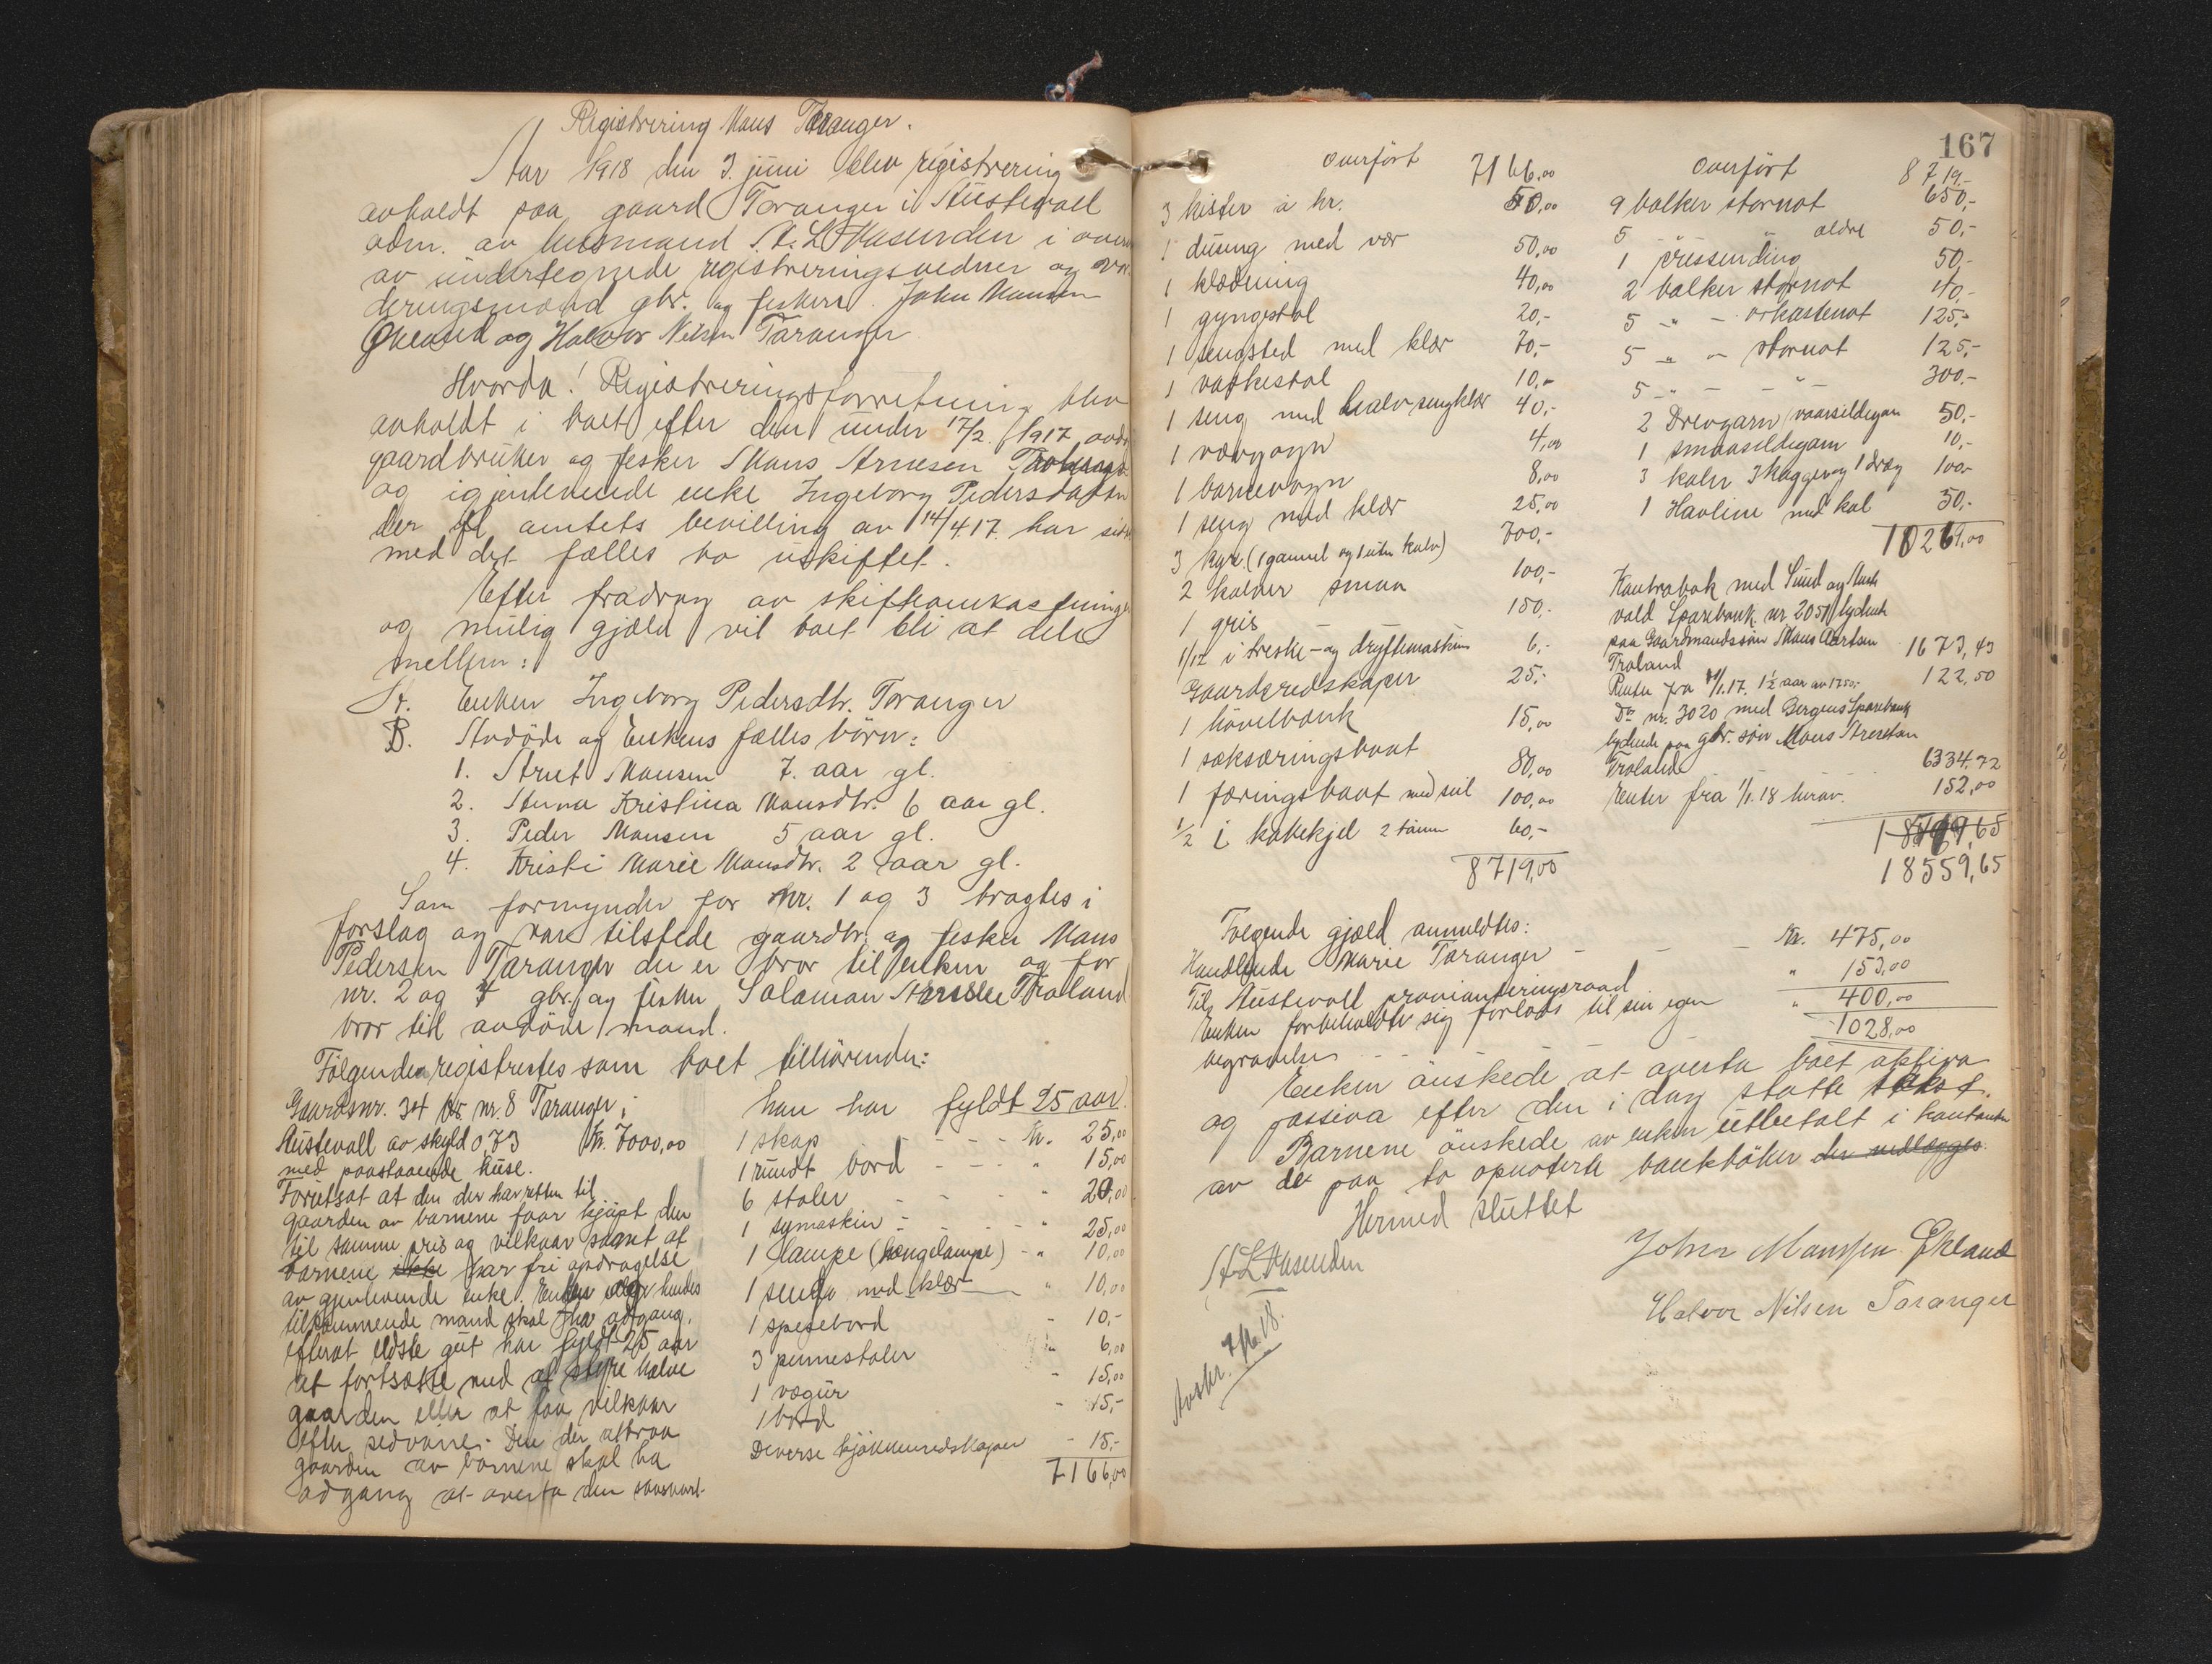 Registrering Mons Taranger.
Aar 1918 den 3. juni blev registrering
avholdt paa gaard Taranger i Austevoll
adm. av lensmand A. L. Husenden i overv
av undertegnede registreringsvidner og vur
deringsmænd gbr. og fiskere John Monsen
Økland og Halvor Nilsen Taranger
Hvorda! Registreringsforretning blev
avholdt i boet efter den under 17/2. 1917 avdö
gaardbruker og fisker Mons Arnesen
og igjenlevende enke Ingeborg Pedersdatter
der fl amtets bevilling av 14/4 17. har sitt
med det fælles bo uskiftet.
Efter fradrag av skifteomkostninger
og mulig gjæld vil boet bli at dele
mellem:
A. Enken Ingeborg Pedersdtr. Taranger
B. Avdöde og Enkens fælles börn:
1. Arnet Monsen 7. aar gl.
2. Anna Kristina Monsdtr. 6 aar gl.
3. Peder Monsen 5 aar gl.
4. Kristi Marie Monsdtr. 2 aar gl.
Som formynder for nr. 1 og 3 bragtes i
forslag og var tilstede gaardbr. og fisker Mons
Pedersen Taranger der er bror til enken og for
nr. 2 og 4 gbr. og fisker Salamon Troland
bror til avdöde mand.
Fölgende registrertes som boet tilhörende:
Gaardsnr. 34 br. nr. 8 Taranger i
Austevoll av skyld 0,73 kr. 7000,00
med paastaaende huse.
Forutsat at den der har retten til
gaarden av barnene faar kjöpt den
til samme pris og vilkaar samt at
barnene ikke har fri opdragelse
av gjenlevende enke. Enken eller hendes
tilkommende mand skal ha adgang,
efterat eldste gut har fyldt 25 aar
at fortsætte med at styre halve
gaarden eller at faa vilkaar
efter sedvane. Den der attraa
gaarden av barnene skal ha
adgang at overta den saasnart
han har fyldt 25 aar.
1 skap - - - kr. 25,00
1 rundt bord - - - " 15,00
6 stoler - - - " 20,00
1 symaskin - - - " 25,00
1 lampe (hængelampe) - " 10,00
1 seng med klær " 10,00
1 spisebord - 10,-
3 pinnestoler 6,00
1 vægur - 15,00
1 bord - 15,-
Diverse kjökkenredskaper - 15,-
7166,00
167
overfört 7166,00
3 kister a kr. 50,00
1 duung med vær 50,00
1 klædning 40,00
1 gyngestol 20,-
1 sengsted med klær 70,-
1 vaskestol 10,-
1 seng med halv sengklær 40,-
1 vævgogn 4,00
1 barnevogn 8,00
1 seng med klær 25,00
3 kyr (1 gammel og 1 uten kalv) 700,-
2 kalver smaa 100,-
1 gris 150,-
1/17 i treske- og dryftemaskin 6,-
Gaardsredskaper 25,-
1 hövelbænk 15,00
1 seksæringsbaat 80,00
1 færingsbaat med seil 100,00
1/2 i kokekjel 2 tönn 60,-
8719,00
overfört 8719,-
9 balker stornot 650,-
5 - " - ældre 50,-
1 presending 50,-
2 balker stornot 40,-
5 - " - orkastenot 125,-
5 - " - stornot 125,-
5 - " - - " - 300,-
2 Drevgarn vaarsildegarn 50,-
1 smaasildegarn 10,-
3 kaler 3 kagger og 1 dræg 100,-
1 Havline med kal 50,-
10269,00
Kontrabok med Sund og Auste
vold Sparebank nr. 2051 lydende
paa Gaardmandssön Mons
Troland 1673,43
Renter fra 1/1.17. 1½ aar av 1750,- 122,50
Do nr. 3020 med Bergens Sparebank
lydende paa gbr. sön Mons
Troland 6334,72
Renter fra 1/1.18 herav. 152,00
18559,65
Fölgende gjæld anmeldtes:
Handlende Marie Taranger - - - kr. 475,00
Til Austevoll provianteringsraad " 153,00
Enken forbeholdte sig forlods til sin egen
begravelse - - - " 400,00
1028,00
Enken önskede at overta boet aktiva
og passiva efter den i dag satte takst.
Barnene önskede av enken utbetalt i kontanter
av de paa to opnoterte bankböker der nedlægges
Hermed sluttet
A L Husenden
John Monssen Økland
Halvor Nilsen Taranger
Avskr. 7/6.18.